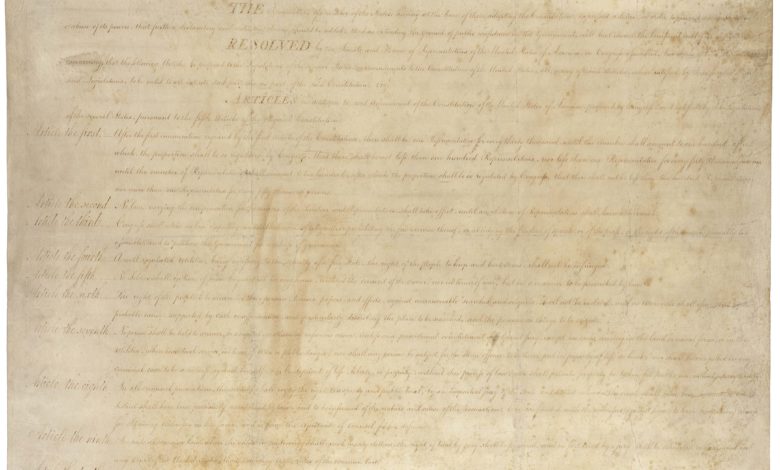 THE Conventions of a number of the States having at the time of their adopting the Constitution, expressed a desire, in order to prevent
abuse of its powers, that further declaratory and restrictive clauses should be added: And as extending the ground of public confidence in the Government, will best ensure the beneficent ends
RESOLVED by the Senate and House of Representatives of the United States of America, in Congress assembled, two thirds
concurring, that the following Articles be proposed to the Legislatures of the several States, as amendments to the Constitution of the United States, all, or any of which Articles, when ratified by three fourths of
said Legislatures, to be valid to all intents and purposes, as part of the said Constitution; viz.
ARTICLES in addition to, and Amendment of the Constitution of the United States of America, proposed by Congress, and ratified by the Legislatures
of the several States, pursuant to the fifth Article of the original Constitution.
Article the first... After the first enumeration required by the first Article of the Constitution, there shall be one Representative for every thirty thousand, until the number shall amount to one hundred, after
which, the proportion shall be so regulated by Congress, that there shall be not less than one hundred Representatives, nor less than one Representative for every forty thousand persons,
until the number of Representatives shall amount to two hundred, after which the proportion shall be so regulated by Congress, that there shall not be less than two hundred Representatives,
nor more than one Representative for every fifty thousand persons.
Article the second... No law, varying the compensation for the services of the Senators and Representatives, shall take effect, until an election of Representatives shall have intervened.
Article the third... Congress shall make no law respecting an establishment of religion, or prohibiting the free exercise thereof; or abridging the freedom of speech, or of the press; or the right of the people peaceably to
assemble, and to petition the Government for a redress of grievances.
Article the fourth... A well regulated Militia, being necessary to the security of a free State, the right of the people to keep and bear Arms, shall not be infringed.
Article the fifth... No Soldier shall, in time of peace be quartered in any house, without the consent of the owner, nor in time of war, but in a manner to be prescribed by law.
Article the sixth... The right of the people to be secure in their persons, houses, papers, and effects, against unreasonable searches and seizures, shall not be violated, and no Warrants shall issue, but upon
probable cause, supported by oath or affirmation, and particularly describing the place to be searched, and the persons or things to be seized.
Article the seventh... No person shall be held to answer for a capital, or otherwise infamous crime, unless on a presentment or indictment of a Grand Jury, except in cases arising in the land or naval forces, or in the
Militia, when in actual service in time of War or public danger; nor shall any person be subject for the same offence to be twice put in jeopardy of life or limb; nor shall be compelled in any
criminal case to be a witness against himself, nor be deprived of life, liberty, or property, without due process of law; nor shall private property be taken for public use, without just compensation.
Article the eighth... In all criminal prosecutions, the accused shall enjoy the right to a speedy and public trial, by an impartial jury of the State and district wherein the crime shall have been committed, which
district shall have been previously ascertained by law, and to be informed of the nature and cause of the accusation; to be confronted with the witnesses against him; to have compulsory process
for obtaining witnesses in his favor, and to have the assistance of counsel for his defence.
Article the ninth... In suits at common law, where the value in controversy shall exceed twenty dollars, the right of trial by jury shall be preserved, and no fact tried by a jury, shall be otherwise re-examined in
any Court of the United States, than according to the rules of the common law.